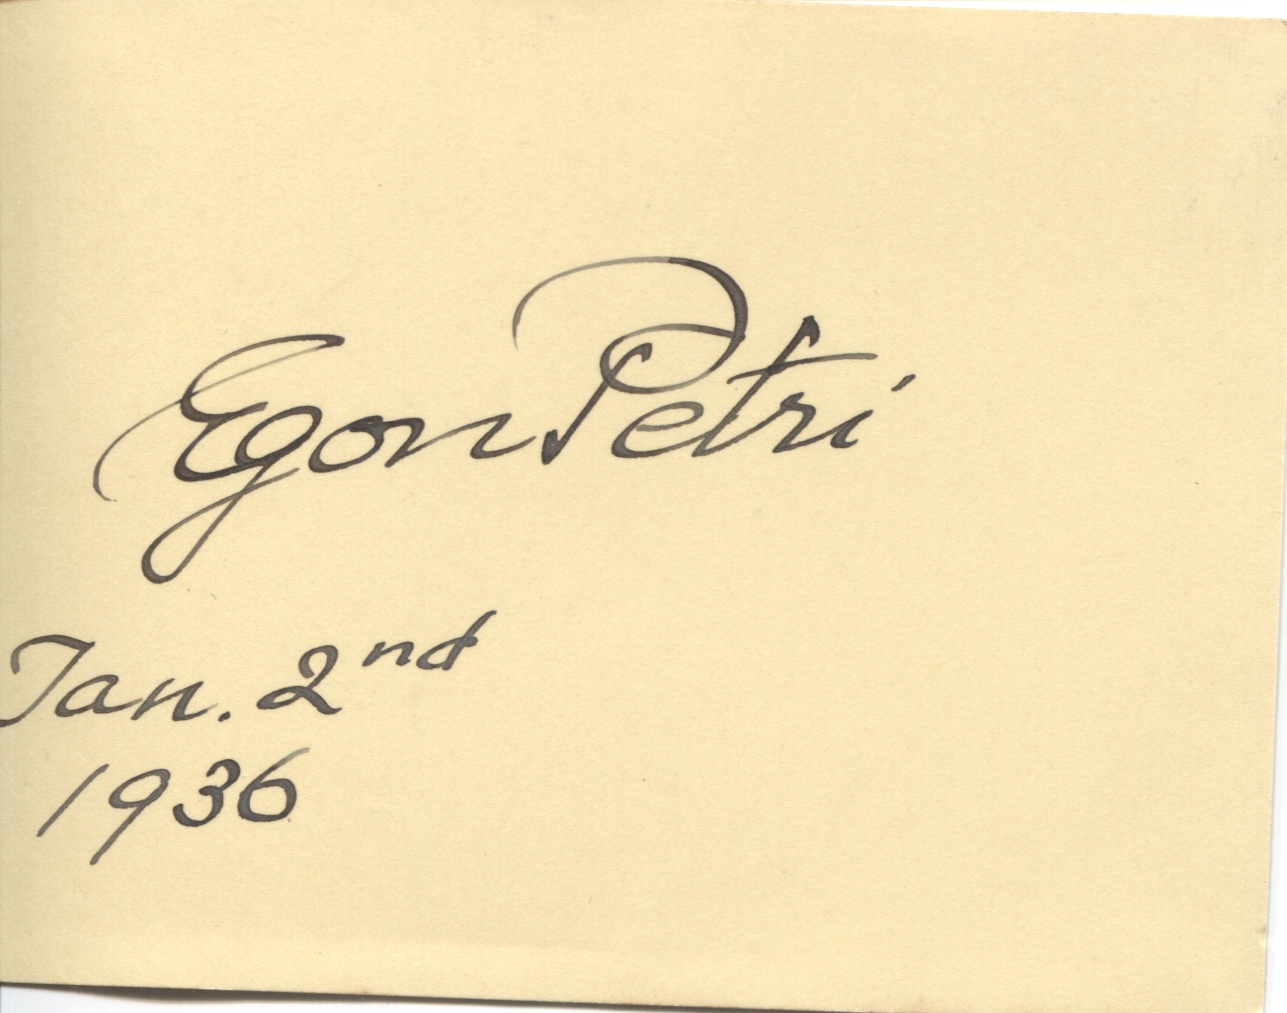 Egon Petri
Jan. 2nd
1936